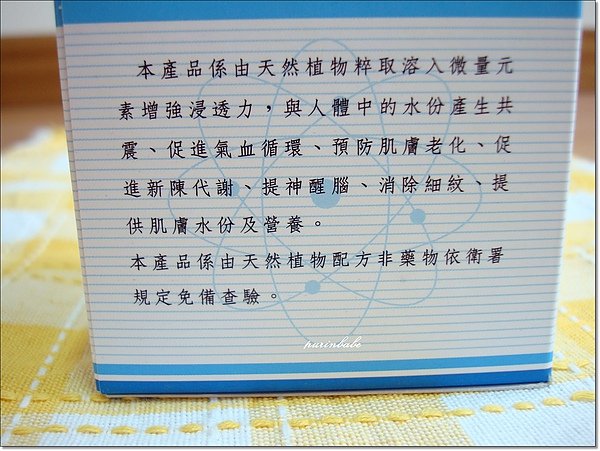 本產品係由天然植物粹取溶入微量元
素增強浸透力，與人體中的水份產生共
震、促進氣血循環、預防肌膚老化、促
進新陳代謝、提神醒腦、消除細紋、提
供肌膚水份及營養。
本產品係由天然植物配方非藥物依衛署
規定免備查驗。
purinbabe